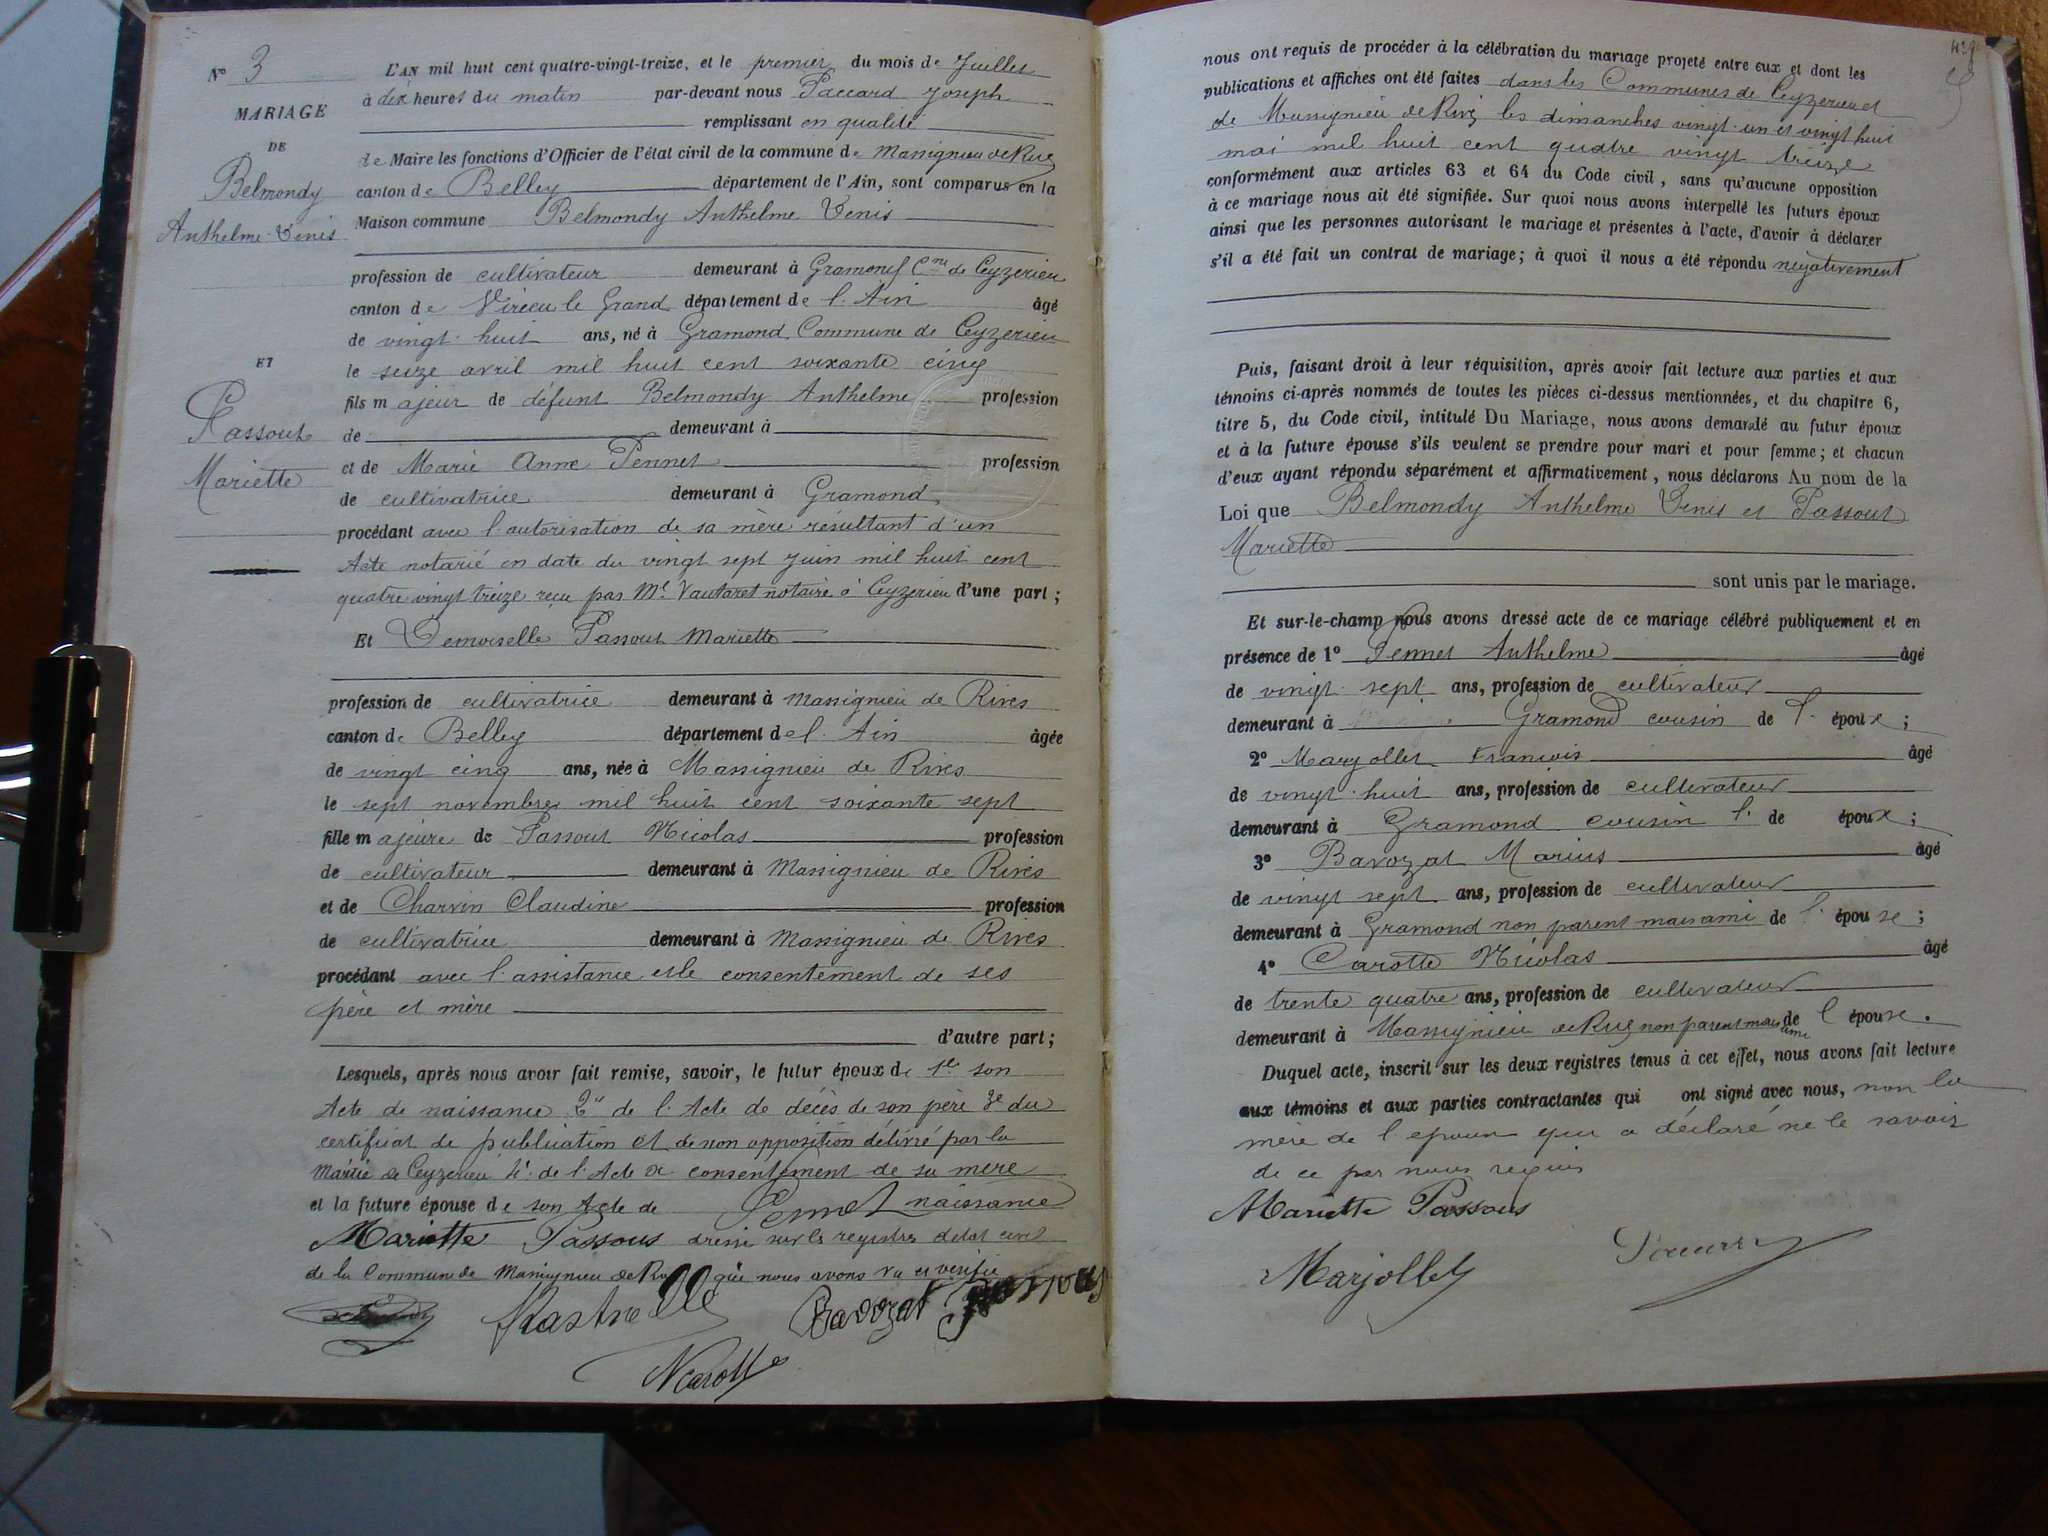 N° 3
MARIAGE
DE
Belmondy
Anthelme Denis
ET
Passout
Mariette
L'AN mil huit cent quatre-vingt-treize, et le premier du mois de Juillet
à dix heures du matin par-devant nous Paccard Joseph
remplissant en qualité
de Maire les fonctions d'Officier de l'état civil de la commune de Massignieu de Rives
canton de Belley département de l'Ain, sont comparus en la
Maison commune Belmondy Anthelme Denis
profession de cultivateur demeurant à Gramond Cne de Ceyzerieu
canton de Virieu le Grand département de l'Ain âgé
de vingt-huit ans, né à Gramond Commune de Ceyzerieu
le seize avril mil huit cent soixante cinq
fils majeur de défunt Belmondy Anthelme profession
de demeurant à
et de Marie Anne Pennet profession
de cultivatrice demeurant à Gramond
procédant avec l'autorisation de sa mère résultant d'un
Acte notarié en date du vingt sept juin mil huit cent
quatre vingt treize reçu par Me Vautaret notaire à Ceyzerieu d'une part;
Et Demoiselle Passout Mariette
profession de cultivatrice demeurant à Massignieu de Rives
canton de Belley département de l'Ain âgée
de vingt cinq ans, née à Massignieu de Rives
le sept novembre mil huit cent soixante sept
fille majeure de Passout Nicolas profession
de cultivateur demeurant à Massignieu de Rives
et de Charvin Claudine profession
de cultivatrice demeurant à Massignieu de Rives
procédant avec l'assistance et le consentement de ses
père et mère
d'autre part;
Lesquels, après nous avoir fait remise, savoir, le futur époux de 1e son
Acte de naissance 2e de l'Acte de décès de son père 3e du
certificat de publication et de non opposition délivré par la
Mairie de Ceyzerieu 4e de l'Acte de consentement de sa mère
et la future épouse de son Acte de Pennet naissance
Mariette Passout dressé sur les registres detat civil
de la Commune de Massignieu de Rives que nous avons vu et vérifié
Bavozat Passout
N Carotte
nous ont requis de procéder à la célébration du mariage projeté entre eux et dont les
publications et affiches ont été faites dans les Communes de Ceyzerieu et
de Massignieu de Rives les dimanches vingt-un et vingt huit
mai mil huit cent quatre vingt treize
conformément aux articles 63 et 64 du Code civil, sans qu'aucune opposition
à ce mariage nous ait été signifiée. Sur quoi nous avons interpellé les futurs époux
ainsi que les personnes autorisant le mariage et présentes à l'acte, d'avoir à déclarer
s'il a été fait un contrat de mariage; à quoi il nous a été répondu négativement
Puis, faisant droit à leur réquisition, après avoir fait lecture aux parties et aux
témoins ci-après nommés de toutes les pièces ci-dessus mentionnées, et du chapitre 6,
titre 5, du Code civil, intitulé Du Mariage, nous avons demandé au futur époux
et à la future épouse s'ils veulent se prendre pour mari et pour femme; et chacun
d'eux ayant répondu séparément et affirmativement, nous déclarons Au nom de la
Loi que Belmondy Anthelme Denis et Passout
Mariette
sont unis par le mariage.
Et sur-le-champ nous avons dressé acte de ce mariage célébré publiquement et en
présence de 1° Pennet Anthelme âgé
de vingt-sept ans, profession de cultivateur
demeurant à Gramond cousin de l'époux;
2° Marjollet François âgé
de vingt-huit ans, profession de cultivateur
demeurant à Gramond cousin l' de époux;
3° Bavozat Marius âgé
de vingt sept ans, profession de cultivateur
demeurant à Gramond non parent mais ami de l'épouse;
4° Carotte Nicolas âgé
de trente quatre ans, profession de cultivateur
demeurant à Massignieu de Rives non parent mais ami de l'épouse.
Duquel acte, inscrit sur les deux registres tenus à cet effet, nous avons fait lecture
aux témoins et aux parties contractantes qui ont signé avec nous, non la
mère de l'epoux qui a déclaré ne le savoir
de ce par nous requis
Mariette Passout
Marjollet Paccard